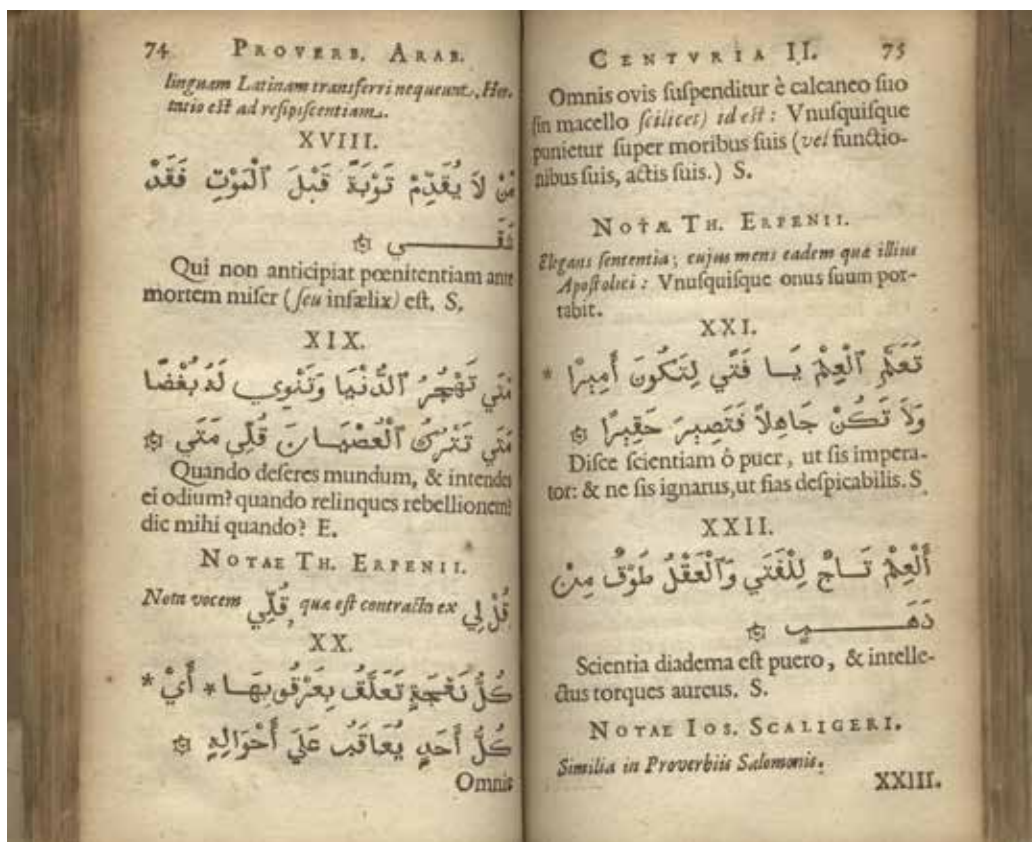 74 PROVERB. ARAB.
linguam Latinam transferri nequeunt. Hor-
tatio est ad resipiscentiam.
XVIII.
مَنْ لَا يُقَدِّمْ تَوْبَةً قَبْلَ ٱلْمَوْتِ فَقَدْ
شَقَــــــي ۞
Qui non anticipiat pœnitentiam ante
mortem miser (ſeu infælix) est. S.
XIX.
مَتَي تَهْجُرُ ٱلدُّنْيَا وَتَنْوِي لَهُ بُغْضًا
مَتَي تَتْرُكُ ٱلْعُصْيَــانَ قُلِّي مَتَي ۞
Quando deſeres mundum, & intendes
ei odium? quando relinques rebellionem?
dic mihi quando? E.
NOTAE TH. ERPENII.
Nota vocem قُلِّي, quæ est contracta ex قُلْ لِي
XX.
كُلُّ نَعْجَةٍ تَعَلَّقُ بِعَرْقُوبِهَــا * أَيْ *
كُلُّ أَحَدٍ يُعَاقَبُ عَلَي أَحْوَالِهِ ۞
Omnis
CENTVRIA II. 75
Omnis ovis ſuſpenditur è calcaneo ſuo
(in macello ſcilicet) id est: Vnuſquiſque
punietur ſuper moribus ſuis (vel functio-
nibus ſuis, actis ſuis.) S.
NOTÆ TH. ERPENII.
Elegans ſententia; cujus mens eadem quæ illius
Apostolici: Vnuſquiſque onus ſuum por-
tabit.
XXI.
تَعَلَّمِ ٱلْعِلْمَ يَــا فَتَي لِتَكُونَ أَمِيرًا *
وَلَا تَكُنْ جَاهِلًا فَتَصِيرَ حَقِيرًا ۞
Diſce ſcientiam ô puer, ut ſis impera-
tor: & ne ſis ignarus, ut fias deſpicabilis. S.
XXII.
أَلْعِلْمُ تَــاجٌ لِلْفَتَي وَٱلْعَقْلُ طَوْقٌ مِنْ
ذَهَــــــبٍ ۞
Scientia diadema est puero, & intelle-
ctus torques aureus. S.
NOTAE IOS. SCALIGERI.
Similia in Proverbiis Salomonis.
XXIII.